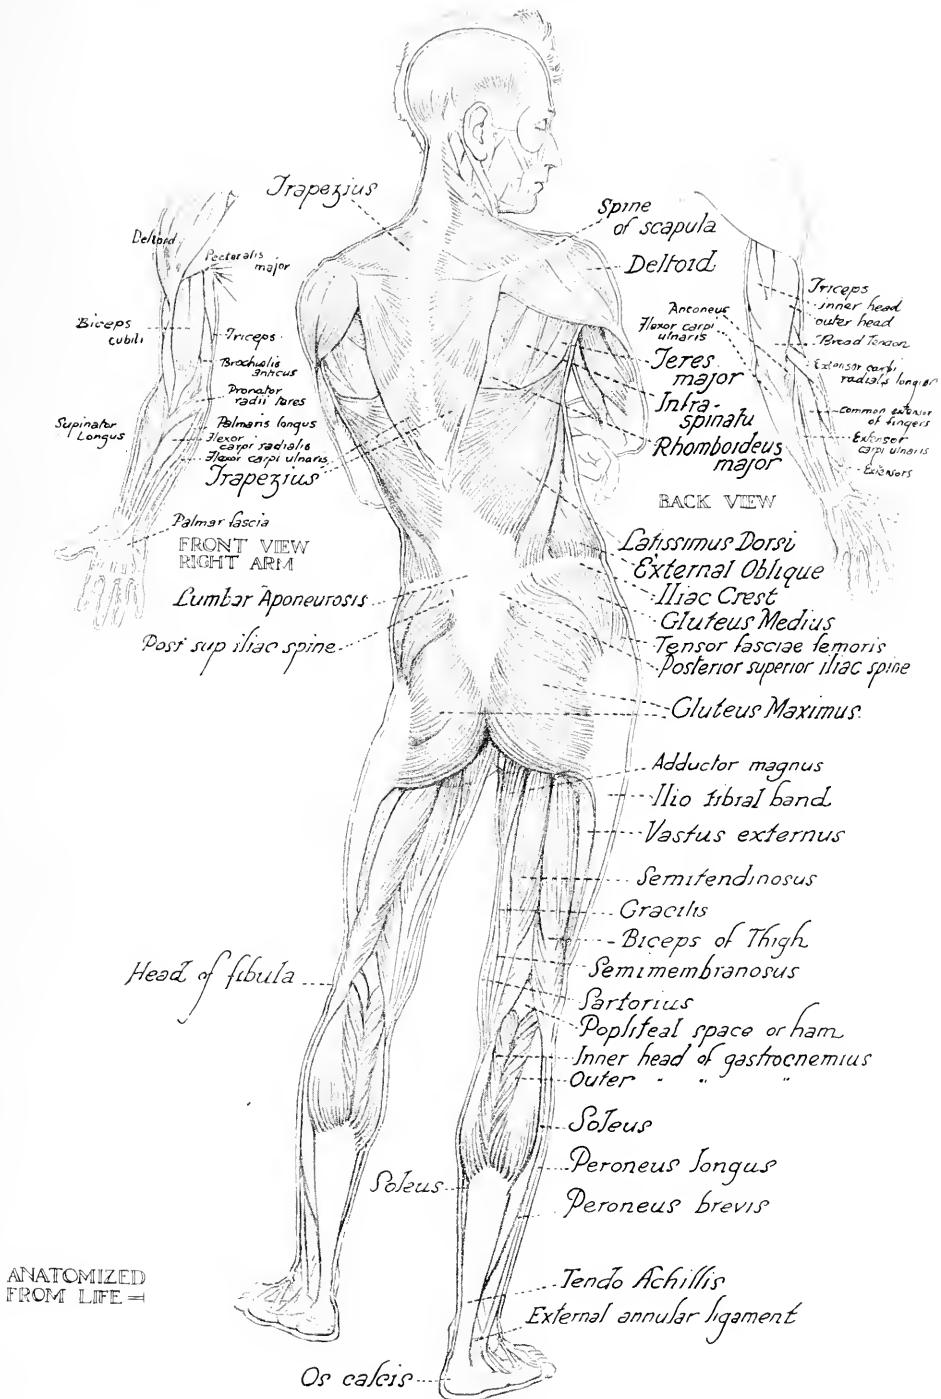 Trapezius
Deltoid
Pectoralis
major
Biceps
cubiti
Triceps
Brachialis
anticus
Pronator
radii teres
Supinator
Longus
Palmaris longus
Flexor
carpi radialis
Flexor carpi ulnaris
Trapezius
Palmar fascia
FRONT VIEW
RIGHT ARM
Lumbar Aponeurosis
Post sup iliac spine
Head of fibula
Soleus
ANATOMIZED
FROM LIFE
Os calcis
Spine
of scapula
Deltoid
Anconeus
Flexor carpi
ulnaris
Teres
major
Infra-
spinatu
Rhomboideus
major
Triceps
inner head
outer head
Broad Tendon
Extensor carpi
radialis longior
Common extensor
of fingers
Extensor
carpi ulnaris
Extensors
BACK VIEW
Latissimus Dorsi
External Oblique
Iliac Crest
Gluteus Medius
Tensor fasciae femoris
Posterior superior iliac spine
Gluteus Maximus
Adductor magnus
Ilio tibial band
Vastus externus
Semitendinosus
Gracilis
Biceps of Thigh
Semimembranosus
Sartorius
Popliteal space or ham
Inner head of gastrocnemius
Outer " " "
Soleus
Peroneus longus
Peroneus brevis
Tendo Achillis
External annular ligament